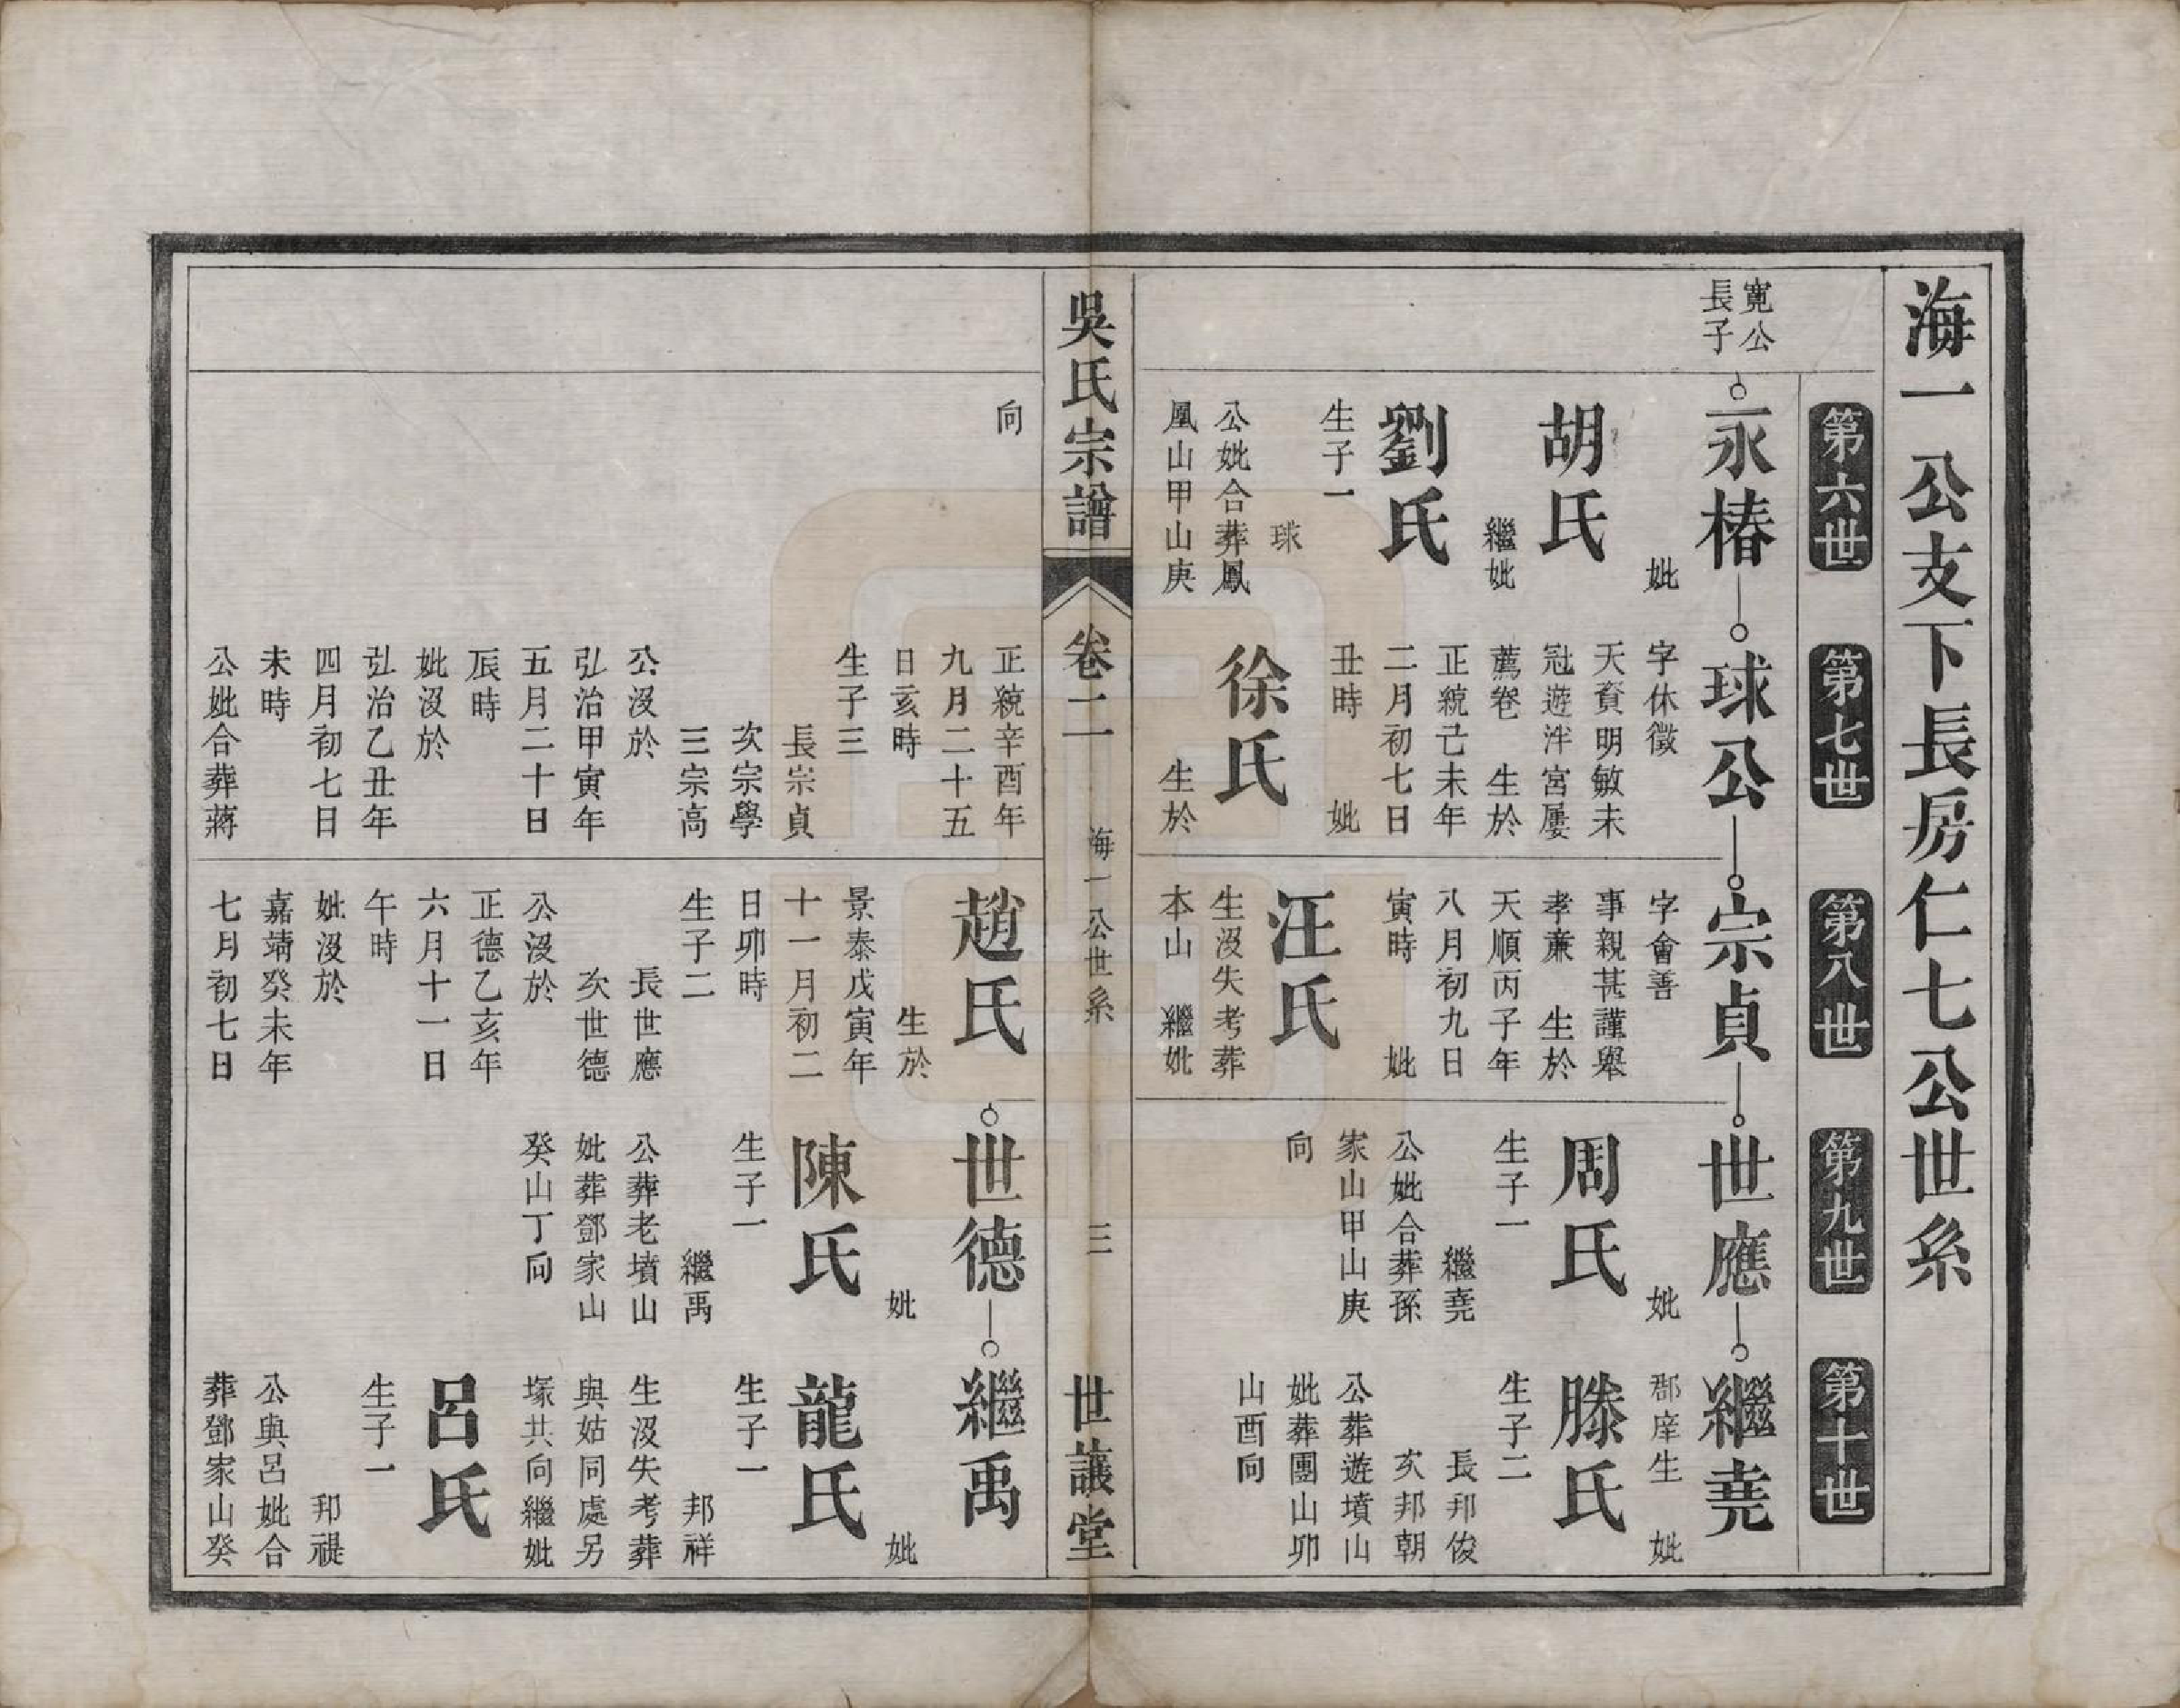 海一公支下長房仁七公世系
第六世
第七世
第八世
第九世
第十世
寬公
長子
永椿
妣
胡氏
繼妣
劉氏
生子一
球
公妣合葬鳳
凰山甲山庚
向
球公
字休徵
天資明敏未
冠遊泮宮屢
薦卷 生於
正統己未年
二月初七日
丑時 妣
徐氏
生於
正統辛酉年
九月二十五
日亥時
生子三
長宗貞
次宗學
三宗高
公沒於
弘治甲寅年
五月二十日
辰時
妣沒於
弘治乙丑年
四月初七日
未時
公妣合葬蔣
宗貞
字會善
事親甚謹舉
孝亷 生於
天順丙子年
八月初九日
寅時 妣
汪氏
生沒失考葬
本山 繼妣
趙氏
生於
景泰戊寅年
十一月初二
日卯時
生子二
長世應
次世德
公沒於
正德乙亥年
六月十一日
午時
妣沒於
嘉靖癸未年
七月初七日
世應
妣
周氏
生子一
繼堯
公妣合葬孫
家山甲山庚
向
世德
妣
陳氏
生子一
繼禹
公葬老墳山
妣葬鄧家山
癸山丁向
繼堯
郡庠生 妣
滕氏
生子二
長邦俊
次邦朝
公葬遊墳山
妣葬團山卯
山酉向
繼禹
妣
龍氏
生子一
邦祥
生沒失考葬
與姑同處另
塚共向繼妣
呂氏
生子一
邦禔
公與呂妣合
葬鄧家山癸
吳氏宗譜
卷二
海一公世系
三
世讓堂